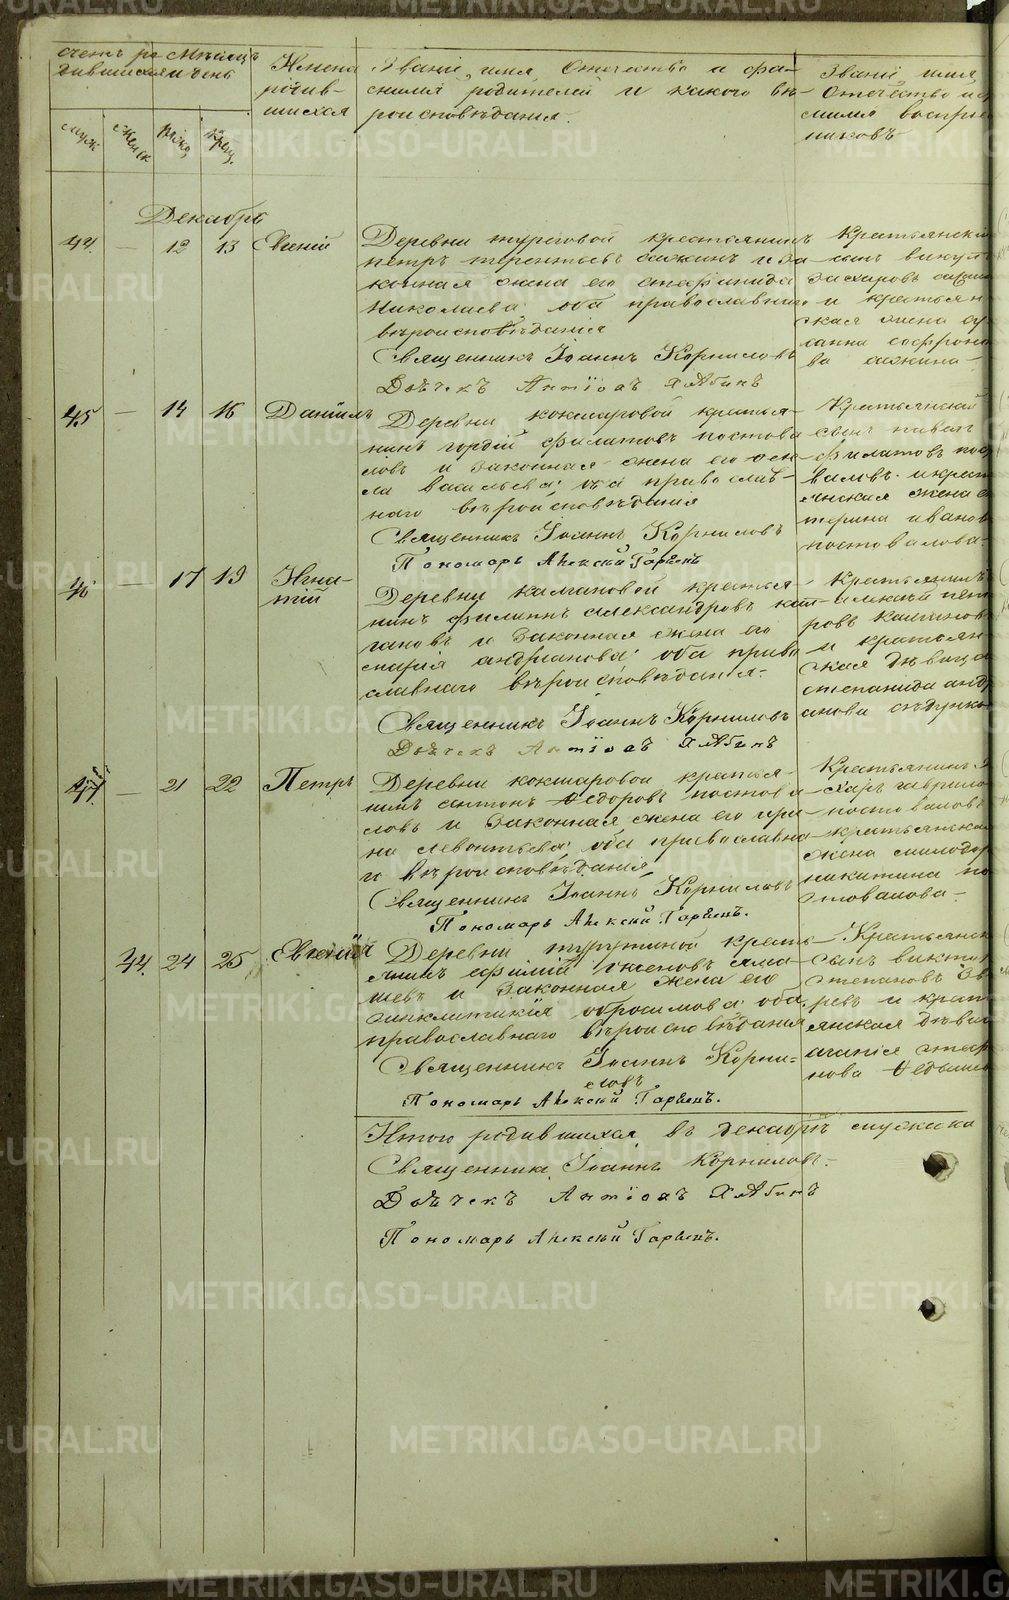 Счетъ ро
дившихся
Мѣсяцъ
и день
муж
женск
рожд
крещ.
Имена
родив-
шихся
Званіе, имя, Отечество и фа-
милія родителей и какого вѣ-
роисповѣданія.
Званіе, имя,
Отечество и ф
милія воспрі
никовъ
Декабрь
44. — 12 13 Евгеній
Деревни крестьянинъ
петръ терентьевъ и за
конная жена его
Николаева оба православнаго
вѣроисповѣданія
Священникъ Іоаннъ Корниловъ
Дьячекъ Антіохъ Хлябинъ
Крестьянскі
сынъ викул
захаровъ
и крестьян
ская жена су
санна софроно
ва
45 — 14 16 Даніилъ
Деревни кокшаровой крестья-
нинъ гордій филатовъ постова
ловъ и законная жена его
васильева оба православ-
наго вѣроисповѣданія
Священникъ Іоаннъ Корниловъ
Пономарь Алексій Гаряевъ
Крестьянскій
сынъ
филатовъ пос
валовъ и крест
янская жена е
терина иванов
постовалова
46 — 17 19 Игна-
тій
Деревни калгановой крестья-
нинъ филиппъ александровъ кал-
гановъ и законная жена его
марія андріанова оба право
славнаго вѣроисповѣданія.
Священникъ Іоаннъ Корниловъ
Дьячекъ Антіохъ Хлябинъ
Крестьянинъ
алексій пет
ровъ Калганов
и крестьян
ская дѣвица
степанида андр
анова
47 — 21 22 Петръ
Деревни кокшаровой крестья-
нинъ антонъ Ѳедоровъ постова
ловъ и законная жена его ири
на Левонтьева оба православна
го вѣроисповѣданія
Священникъ Іоаннъ Корниловъ
Пономарь Алексій Гаряевъ.
Крестьянинъ з
харъ гаврило
постоваловъ
крестьянская
жена милодор
никитина по
стовалова.
44. 24 25 Евгенія
Деревни крестья-
янинъ ефимій
и законная жена его
синклитикія оброси́мова оба
православнаго вѣроисповѣданія
Священникъ Іоаннъ Корни-
ловъ
Пономарь Алексій Гаряевъ.
Крестьянск
сынъ викто
степановъ Зв
ревъ и крест
янская дѣвиц
агапія
нова
Итого родившихся въ декабрѣ мужска
Священникъ Іоаннъ Корниловъ.
Дьячекъ Антіохъ Хлябинъ
Пономарь Алексій Гаряевъ.
METRIKI.GASO-URAL.RU